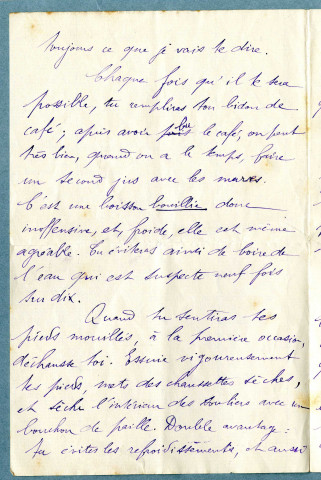 toujours ce que je vais te dire.
Chaque fois qu'il te sera
possible, tu rempliras ton bidon de
café ; après avoir bu le café, on peut
très bien, quand on a le temps, faire
un second jus avec les marcs.
C'est une boisson bouillie donc
inoffensive, et, froide, elle est même
agréable. Tu éviteras ainsi de boire de
l'eau qui est suspecte neuf fois
sur dix.
Quand tu sentiras tes
pieds mouillés, à la première occasion,
déchausse toi. Essuie vigoureusement
tes pieds, mets des chaussettes sèches,
et sèche l'intérieur des souliers avec un
bouchon de paille. Double avantage :
tu évites les refroidissements, et aussi